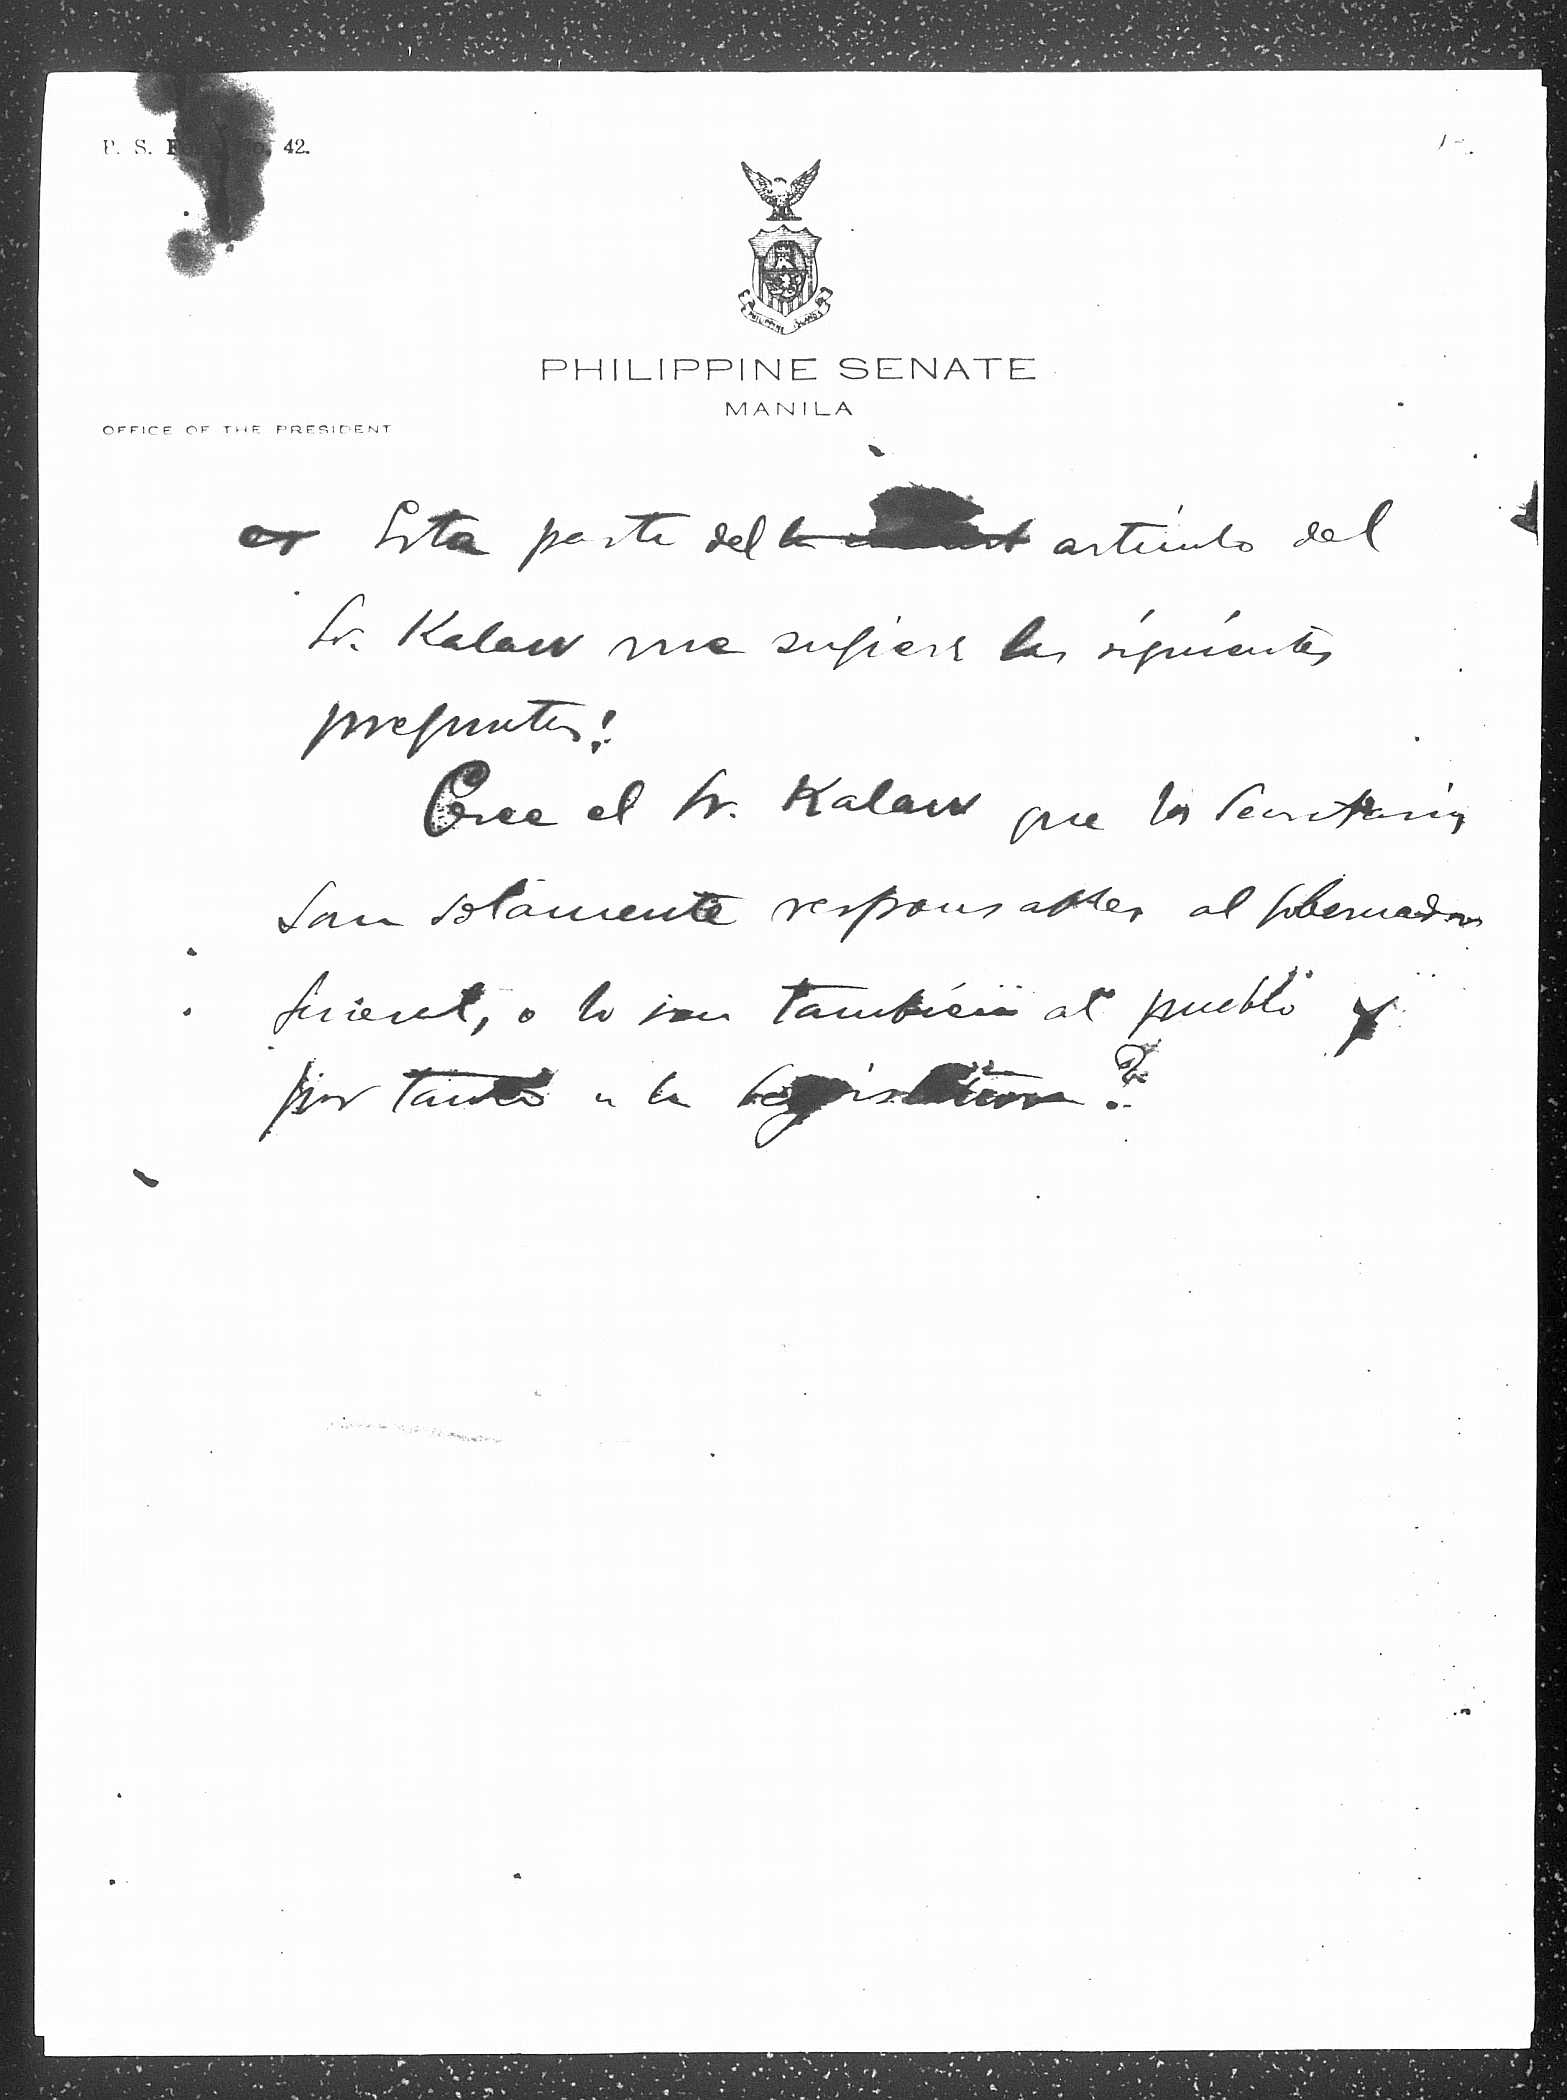 P. S. 42.
1-.
PHILIPPINE ISLANDS
PHILIPPINE SENATE
MANILA
OFFICE OF THE PRESIDENT
Esta parte del artículo del
Sr. Kalaw me sugiere las siguientes
preguntas:
Cree el Sr. Kalaw que los Secretarios
son solamente responsables al gobernador
General, o lo son también al pueblo y
por tanto a la Legislatura?